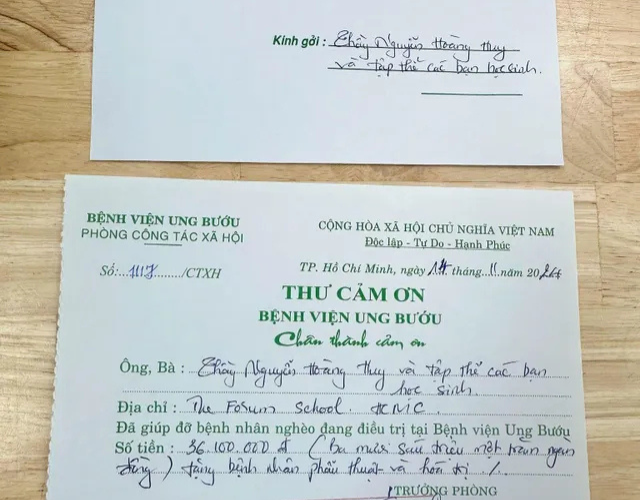 Kính gởi : Thầy Nguyễn Hoàng Huy
và tập thể các bạn học sinh.
BỆNH VIỆN UNG BƯỚU
PHÒNG CÔNG TÁC XÃ HỘI
CỘNG HÒA XÃ HỘI CHỦ NGHĨA VIỆT NAM
Độc lập - Tự Do - Hạnh Phúc
Số:.../CTXH
TP. Hồ Chí Minh, ngày 14 tháng 11 năm 2024
THƯ CẢM ƠN
BỆNH VIỆN UNG BƯỚU
Chân thành cảm ơn
Ông, Bà : Thầy Nguyễn Hoàng Huy và tập thể các bạn
học sinh.
Địa chỉ : The Forum School. HCMC.
Đã giúp đỡ bệnh nhân nghèo đang điều trị tại Bệnh viện Ung Bướu
Số tiền : 36.100.000 đ ( Ba mươi sáu triệu một trăm ngàn
đồng ) tặng bệnh nhân phẫu thuật và hóa trị ./.
TRƯỞNG PHÒNG